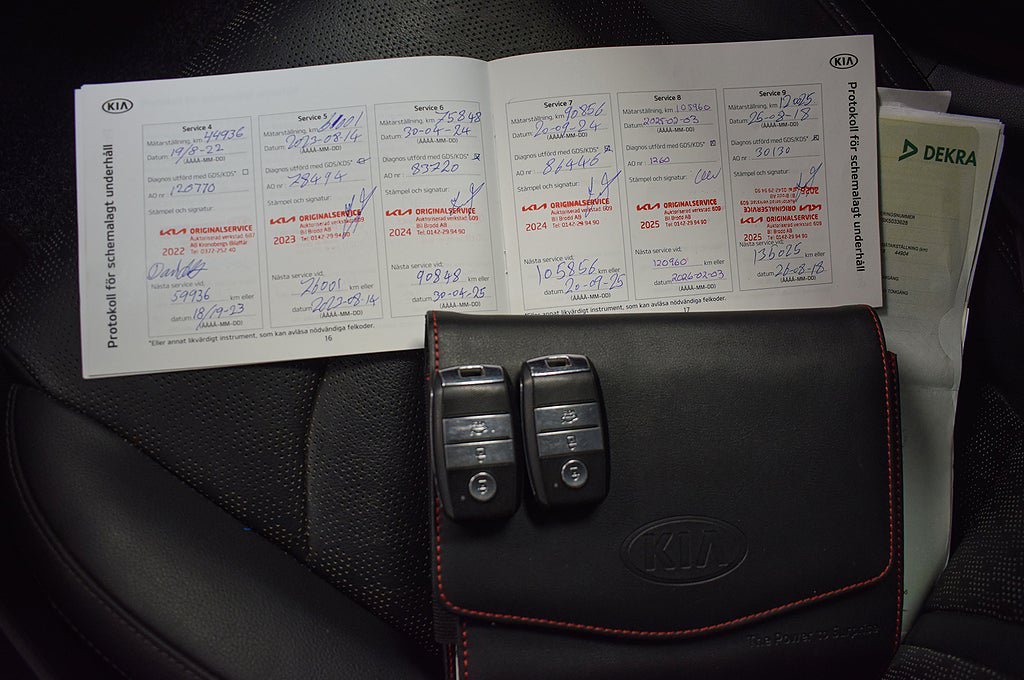 KIA
Protokoll för schemalagt underhåll
Service 4
Mätarställning, km 44936
Datum 19/8-22
(ÅÅÅÅ-MM-DD)
Diagnos utförd med GDS/KDS*
AO nr: 120770
Stämpel och signatur:
KIA ORIGINALSERVICE
Auktoriserad verkstad 687
AB Kronobergs Bilaffär
2022 Tel 0372-252 40
Nästa service vid,
59936 km eller
datum 18/19-23
(ÅÅÅÅ-MM-DD)
Service 5
Mätarställning, km
Datum: 2023-08-14
(ÅÅÅÅ-MM-DD)
Diagnos utförd med GDS/KDS*
AO nr: 78494
Stämpel och signatur:
KIA ORIGINALSERVICE
Auktoriserad verkstad 609
Bil Brodd AB
2023 Tel: 0142-29 94 90
Nästa service vid,
76001 km eller
datum
(ÅÅÅÅ-MM-DD)
Service 6
Mätarställning, km 75848
Datum: 30-04-24
(ÅÅÅÅ-MM-DD)
Diagnos utförd med GDS/KDS*
AO nr: 83720
Stämpel och signatur:
KIA ORIGINALSERVICE
Auktoriserad verkstad 609
Bil Brodd AB
2024 Tel: 0142-29 94 90
Nästa service vid,
90848 km eller
datum 30-04-25
(ÅÅÅÅ-MM-DD)
*Eller annat likvärdigt instrument, som kan avläsa nödvändiga felkoder.
16
Service 7
Mätarställning, km 90856
Datum: 20-09-24
(ÅÅÅÅ-MM-DD)
Diagnos utförd med GDS/KDS*
AO nr: 86446
Stämpel och signatur:
KIA ORIGINALSERVICE
Auktoriserad verkstad 609
Bil Brodd AB
2024 Tel: 0142-29 94 90
Nästa service vid,
105856 km eller
datum 20-09-25
(ÅÅÅÅ-MM-DD)
Service 8
Mätarställning, km 105960
Datum: 2025-02-03
(ÅÅÅÅ-MM-DD)
Diagnos utförd med GDS/KDS*
AO nr: 1260
Stämpel och signatur:
KIA ORIGINALSERVICE
Auktoriserad verkstad 609
Bil Brodd AB
2025 Tel: 0142-29 94 90
Nästa service vid,
120960 km eller
datum: 2026-02-03
(ÅÅÅÅ-MM-DD)
Service 9
Mätarställning, km
Datum: 25-08-18
(ÅÅÅÅ-MM-DD)
Diagnos utförd med GDS/KDS*
AO nr: 30130
Stämpel och signatur:
KIA ORIGINALSERVICE
2025
Nästa service vid,
135025 km eller
datum: 26-08-18
(ÅÅÅÅ-MM-DD)
17
KIA
Protokoll för schemalagt underhåll
DEKRA
KIA
The Power to Surprise